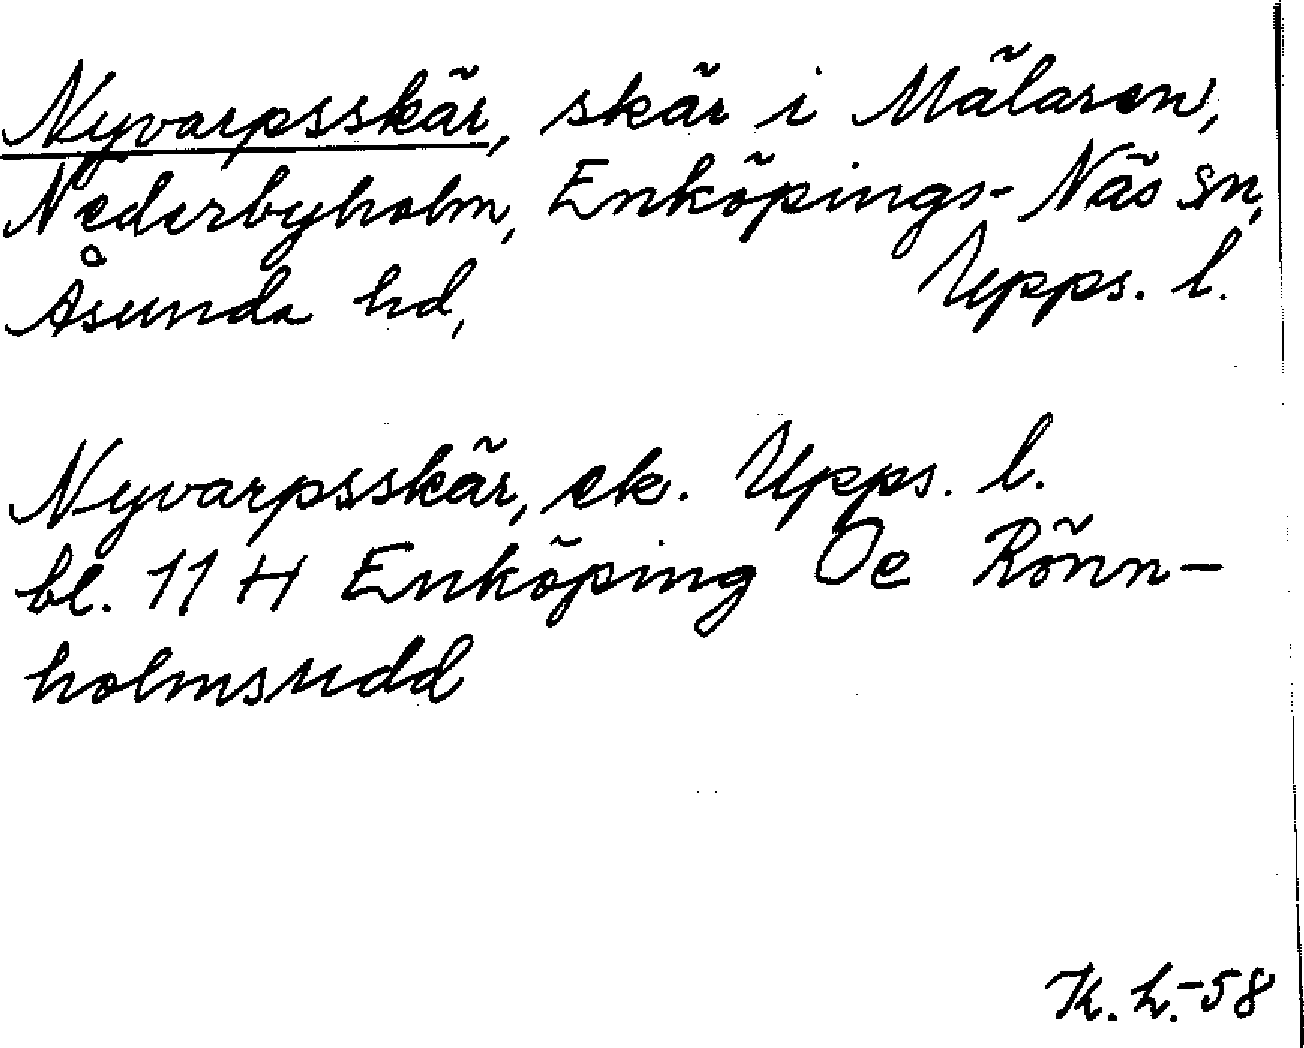 Nyvarpsskär, skär i Mälaren,
Nederbyholm, Enköpings-Näs sn,
Åsunda hd, Upps. l.
Nyvarpsskär, ek. Upps. l.
bl. 11 H Enköping Oe Rönn-
holmsudd
K. L.-58